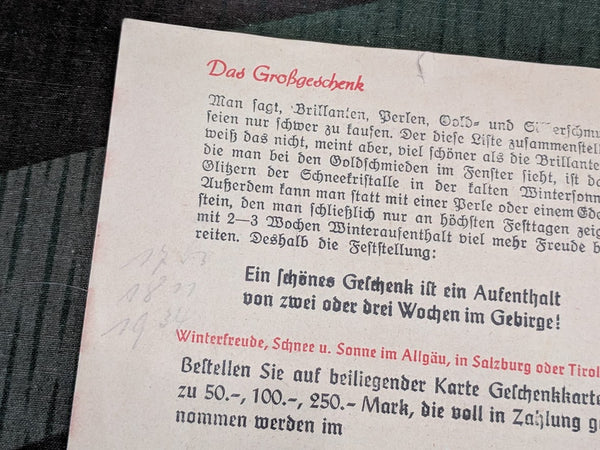 Das Großgeschenk
Man sagt, Brillanten, Perlen, Gold- und Silberschmu
seien nur schwer zu kaufen. Der diese Liste zusammenstell
weiß das nicht, meint aber, viel schöner als die Brillante
die man bei den Goldschmieden im Fenster sieht, ist da
Glitzern der Schneekristalle in der kalten Wintersonn
Außerdem kann man statt mit einer Perle oder einem Ede
stein, den man schließlich nur an höchsten Festtagen zeig
mit 2—3 Wochen Winteraufenthalt viel mehr Freude b
reiten. Deshalb die Feststellung:
Ein schönes Geschenk ist ein Aufenthalt
von zwei oder drei Wochen im Gebirge!
Winterfreude, Schnee u. Sonne im Allgäu, in Salzburg oder Tirol
Bestellen Sie auf beiliegender Karte Geschenkkarte
zu 50.-, 100.-, 250.- Mark, die voll in Zahlung g
nommen werden im